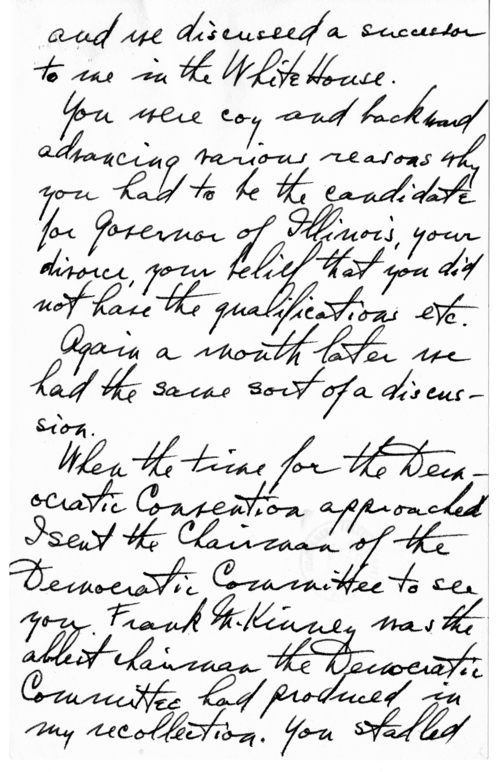 and we discussed a successor
to me in the White House.
You were coy and backward
advancing various reasons why
you had to be the candidate
for Governor of Illinois, your
divorce, your belief that you did
not have the qualifications etc.
Again a month later we
had the same sort of a discus-
sion.
When the time for the Dem-
ocratic Convention approached
I sent the Chairman of the
Democratic Committee to see
you. Frank McKinney was the
ablest chairman the Democratic
Committee had produced in
my recollection. You stalled